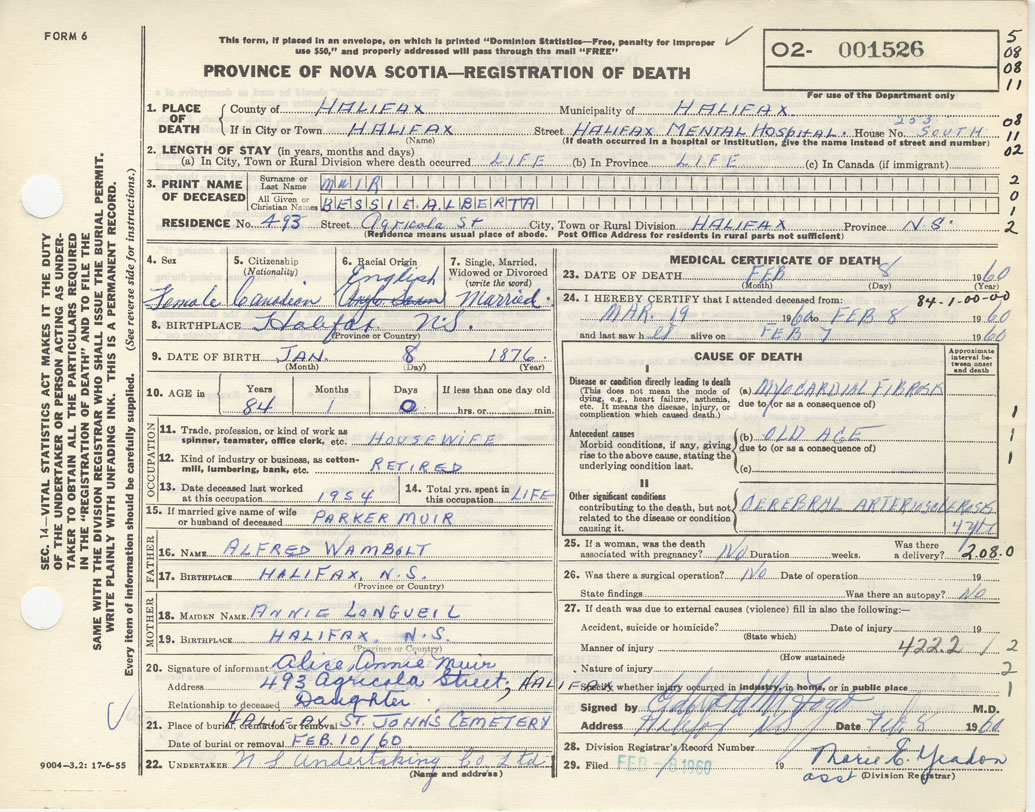 FORM 6
This form, if placed in an envelope, on which is printed "Dominion Statistics—Free, penalty for improper
use $50," and properly addressed will pass through the mail "FREE"
O2- 001526
5
08
08
11
For use of the Department only
PROVINCE OF NOVA SCOTIA—REGISTRATION OF DEATH
1. PLACE OF DEATH
County of HALIFAX Municipality of HALIFAX
If in City or Town HALIFAX Street HALIFAX MENTAL HOSPITAL. House No. SOUTH 08
(Name) (If death occurred in a hospital or institution, give the name instead of street and number) 11
2. LENGTH OF STAY (in years, months and days) 02
(a) In City, Town or Rural Division where death occurred LIFE (b) In Province LIFE (c) In Canada (if immigrant)
3. PRINT NAME OF DECEASED
Surname or Last Name MUIR 2
All Given or Christian Names BESSIE ALBERTA 0
1
RESIDENCE No. 493 Street Agricola St City, Town or Rural Division HALIFAX Province N.S. 2
(Residence means usual place of abode. Post Office Address for residents in rural parts not sufficient)
SEC. 14—VITAL STATISTICS ACT MAKES IT THE DUTY
OF THE UNDERTAKER OR PERSON ACTING AS UNDER-
TAKER TO OBTAIN ALL THE PARTICULARS REQUIRED
IN THE "REGISTRATION OF DEATH" AND TO FILE THE
SAME WITH THE DIVISION REGISTRAR WHO SHALL ISSUE THE BURIAL PERMIT.
WRITE PLAINLY WITH UNFADING INK. THIS IS A PERMANENT RECORD.
Every item of information should be carefully supplied. (See reverse side for instructions.)
4. Sex Female
5. Citizenship (Nationality) Canadian
6. Racial Origin English
7. Single, Married, Widowed or Divorced (write the word) Married.
8. BIRTHPLACE Halifax N.S.
(Province or Country)
9. DATE OF BIRTH JAN. 8 1876.
(Month) (Day) (Year)
10. AGE in Years Months Days If less than one day old
84 1 0 hrs. or min.
OCCUPATION
11. Trade, profession, or kind of work as
spinner, teamster, office clerk, etc. HOUSEWIFE
12. Kind of industry or business, as cotton-
mill, lumbering, bank, etc. RETIRED
13. Date deceased last worked at this occupation 1954
14. Total yrs. spent in this occupation LIFE
15. If married give name of wife or husband of deceased PARKER MUIR
FATHER
16. NAME ALFRED WAMBOLT
17. BIRTHPLACE HALIFAX, N.S.
(Province or Country)
MOTHER
18. MAIDEN NAME ANNIE LONGUEIL
19. BIRTHPLACE HALIFAX, N.S.
(Province or Country)
20. Signature of informant Alice Annie Muir
Address 493 Agricola Street; HALIFAX
Relationship to deceased Daughter
21. Place of burial, cremation or removal HALIFAX ST. JOHNS CEMETERY
Date of burial or removal FEB. 10/60
22. UNDERTAKER N S Undertaking Co Ltd
(Name and address)
9004—3.2: 17-6-55
MEDICAL CERTIFICATE OF DEATH
23. DATE OF DEATH FEB 8 1960
(Month) (Day)
24. I HEREBY CERTIFY that I attended deceased from: 84-1-00-00
MAR. 19 1960 to FEB 8 1960
and last saw h alive on FEB 7 1960
CAUSE OF DEATH
Approximate interval between onset and death
I
Disease or condition directly leading to death
(This does not mean the mode of
dying, e.g., heart failure, asthenia,
etc. It means the disease, injury, or
complication which caused death.)
(a) MYOCARDIAL FIBROSIS
due to (or as a consequence of) 1
Antecedent causes
Morbid conditions, if any, giving
rise to the above cause, stating the
underlying condition last.
(b) OLD AGE 1
due to (or as a consequence of)
(c) 1
II
Other significant conditions
contributing to the death, but not
related to the disease or condition
causing it.
CEREBRAL ARTERIOSCLEROSIS
25. If a woman, was the death Was there
associated with pregnancy? No Duration weeks. a delivery? 208.0
26. Was there a surgical operation? No Date of operation 19
State findings Was there an autopsy? No
27. If death was due to external causes (violence) fill in also the following:—
Accident, suicide or homicide? Date of injury 19
(State which)
Manner of injury 422.2 1 2
(How sustained)
Nature of injury 2
Specify whether injury occurred in industry, in home, or in public place 1
Signed by M.D.
Address Halifax NS Date Feb 8 1960
28. Division Registrar's Record Number
29. Filed FEB - 8 1960 19 Marie E. Yeadon
asst (Division Registrar)